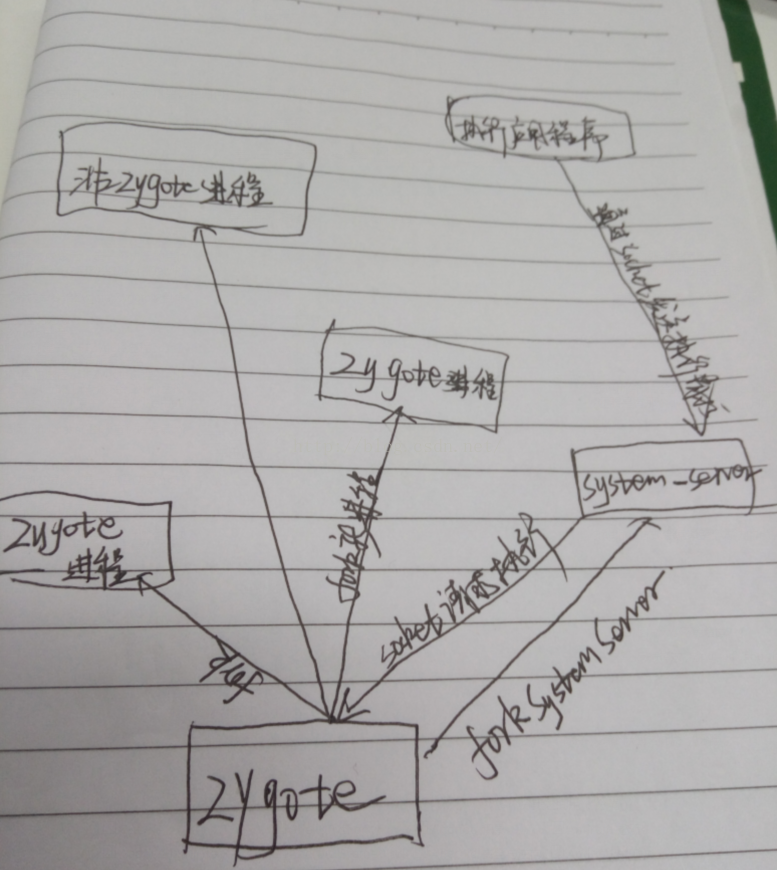 执行应用程序
非Zygote进程
通过socket发送执行
Zygote进程
system-server
Zygote
进程
fork进程
socket请求执行
fork
fork System Server
Zygote